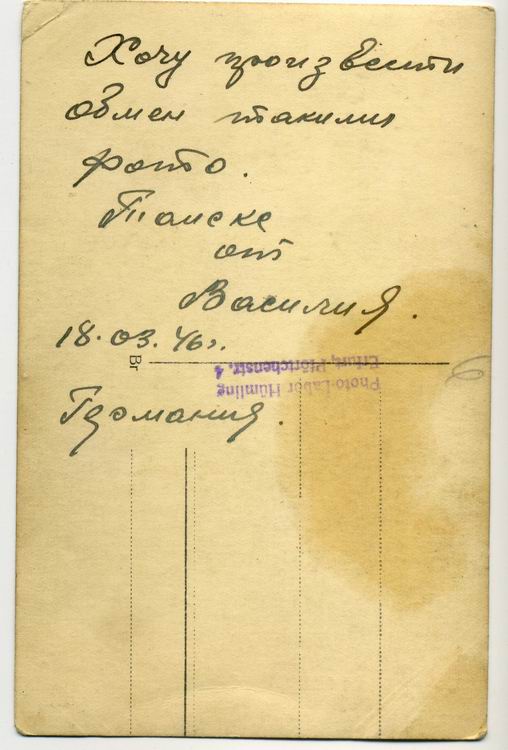 Хочу произвести
обмен такими
фото.
Томске
от
Василия.
18.03.46г.
Br
Photo-Labor Hümling
Erfurt, Pförtchenstr. 4
Германия.